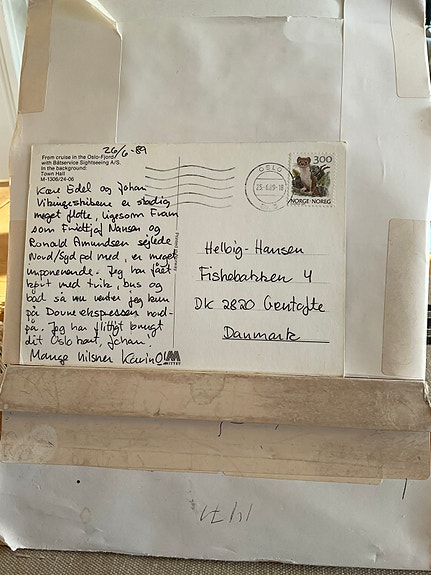 26/6-89
From cruise in the Oslo-Fjord
with Båtservice Sightseeing A/S.
In the background:
Town Hall
M-1306/24-06
Kære Edel og Johan
Vikingeskibene er stadig
meget flotte, ligesom Fram
som Fridtjof Nansen og
Ronald Amundsen sejlede
Nord/Syd pol med, er meget
imponerende. Jeg har fået
kørt med trik, bus og
båd så nu venter jeg kun
på Dovre ekspressen nord-
på. Jeg har flittigt brugt
dit Oslo kort, Johan!
Mange hilsner Karin
MITTET
OSLO
23-6.89-18
300
NORGE·NOREG
Helbig-Hansen
Fiskebakken 4
DK 2820 Gentofte
Danmark